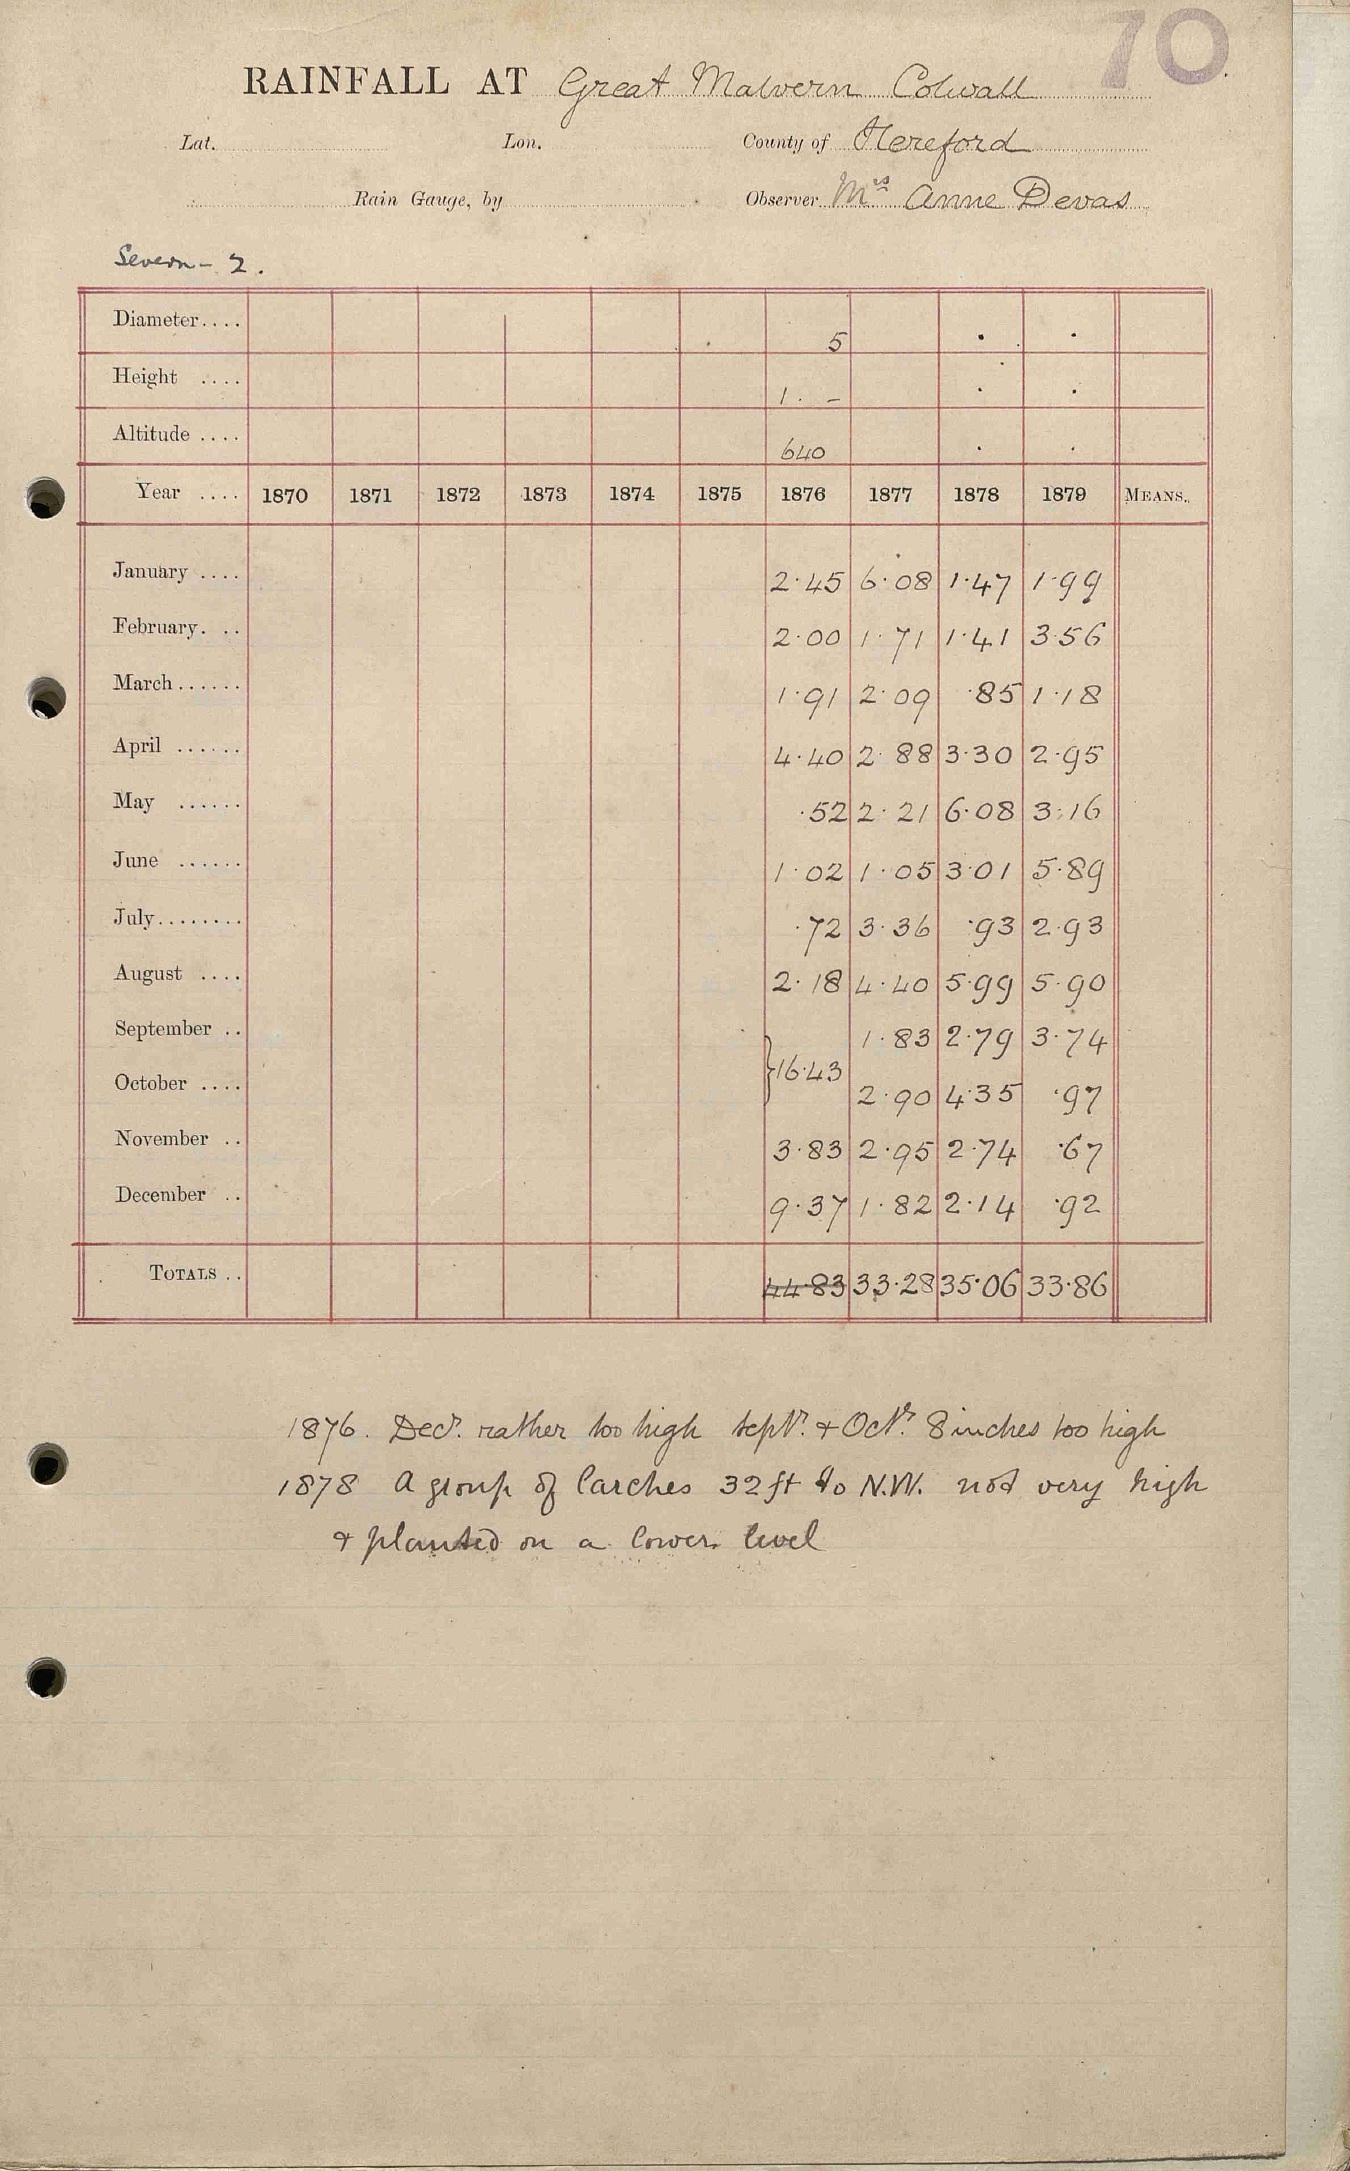 70
RAINFALL AT Great Malvern Colwall
Lat. Lon. County of Hereford
Rain Gauge, by Observer Mrs Anne Devas
Severn - 2.
Diameter.... 5
Height .... 1. -
Altitude .... 640
Year .... 1870 1871 1872 1873 1874 1875 1876 1877 1878 1879 MEANS.
January .... 2.45 6.08 1.47 1.99
February. .. 2.00 1.71 1.41 3.56
March...... 1.91 2.09 .85 1.18
April ...... 4.40 2.88 3.30 2.95
May ...... .52 2.21 6.08 3.16
June ...... 1.02 1.05 3.01 5.89
July........ .72 3.36 .93 2.93
August .... 2.18 4.40 5.99 5.90
September .. 1.83 2.79 3.74
}16.43
October .... 2.90 4.35 .97
November .. 3.83 2.95 2.74 .67
December .. 9.37 1.82 2.14 .92
TOTALS .. 44.83 33.28 35.06 33.86
1876. Decr. rather too high Septr. & Octr. 8 inches too high
1878 A group of larches 32 ft to N.W. not very high
& planted on a lower level